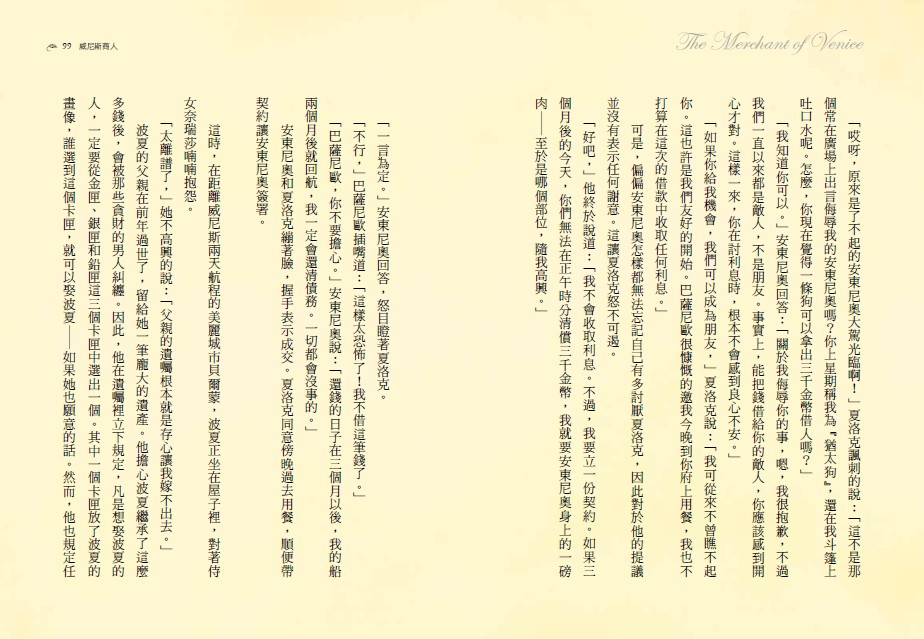 The Merchant of Venice
「哎呀，原來是了不起的安東尼奧大駕光臨啊！」夏洛克諷刺的說：「這不是那
個常在廣場上出言侮辱我的安東尼奧嗎？你上星期稱我為『猶太狗』，還在我斗篷上
吐口水呢。怎麼，你現在覺得一條狗可以拿出三千金幣借人嗎？」
「我知道你可以。」安東尼奧回答：「關於我侮辱你的事，嗯，我很抱歉，不過
我們一直以來都是敵人，不是朋友。事實上，能把錢借給你的敵人，你應該感到開
心才對。這樣一來，你在討利息時，根本不會感到良心不安。」
「如果你給我機會，我們可以成為朋友，」夏洛克說：「我可從來不曾瞧不起
你。這也許是我們友好的開始。巴薩尼歐很慷慨的邀我今晚到你府上用餐，我也不
打算在這次的借款中收取任何利息。」
可是，偏偏安東尼奧怎樣都無法忘記自己有多討厭夏洛克，因此對於他的提議
並沒有表示任何謝意。這讓夏洛克怒不可遏。
「好吧，」他終於說道：「我不會收取利息。不過，我要立一份契約。如果三
個月後的今天，你們無法在正午時分清償三千金幣，我就要安東尼奧身上的一磅
肉——至於是哪個部位，隨我高興。」
「一言為定。」安東尼奧回答，怒目瞪著夏洛克。
「不行，」巴薩尼歐插嘴道：「這樣太恐怖了！我不借這筆錢了。」
「巴薩尼歐，你不要擔心。」安東尼奧說：「還錢的日子在三個月以後，我的船
兩個月後就回航，我一定會還清債務。一切都會沒事的。」
安東尼奧和夏洛克繃著臉，握手表示成交。夏洛克同意傍晚過去用餐，順便帶
契約讓安東尼奧簽署。
這時，在距離威尼斯兩天航程的美麗城市貝爾蒙，波夏正坐在屋子裡，對著侍
女奈瑞莎喃喃抱怨。
「太離譜了，」她不高興的說：「父親的遺囑根本就是存心讓我嫁不出去。」
波夏的父親在前年過世了，留給她一筆龐大的遺產。他擔心波夏繼承了這麼
多錢後，會被那些貪財的男人糾纏。因此，他在遺囑裡立下規定，凡是想娶波夏的
人，一定要從金匣、銀匣和鉛匣這三個卡匣中選出一個。其中一個卡匣放了波夏的
畫像，誰選到這個卡匣，就可以娶波夏——如果她也願意的話。然而，他也規定任
99 威尼斯商人